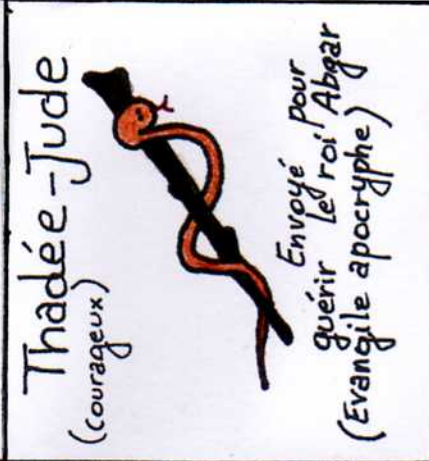 Thadée-Jude
(courageux)
Envoyé pour
guérir le roi Abgar
(Evangile apocryphe)